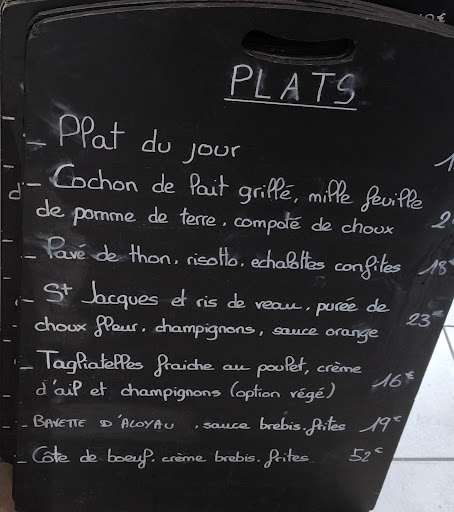 PLATS
- Plat du jour
- Cochon de lait grillé, mille feuille
de pomme de terre, compoté de choux
- Pavé de thon, risotto, echalottes confites 18€
- St Jacques et ris de veau, purée de
choux fleur, champignons, sauce orange 23€
- Tagliatelles fraiche au poulet, crème
d'ail et champignons (option végé) 16€
- BAVETTE D'ALOYAU, sauce brebis, frites 19€
- Côte de boeuf, crème brebis, frites 52€